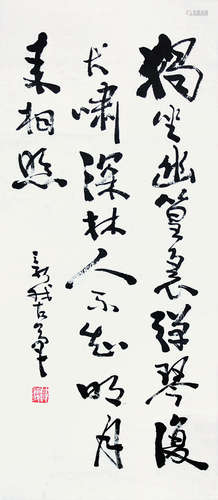 獨坐幽篁裏弹琴復
长嘯深林人不知明月
来相照